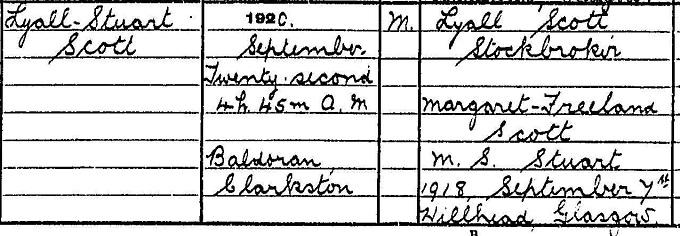 Lyall-Stuart
Scott
1920.
September
Twenty-second
4h. 45m A.M
Baldoran
Clarkston
M.
Lyall Scott
Stockbroker
Margaret-Freeland
Scott
M. S. Stuart
1918, September 7th
Hillhead, Glasgow